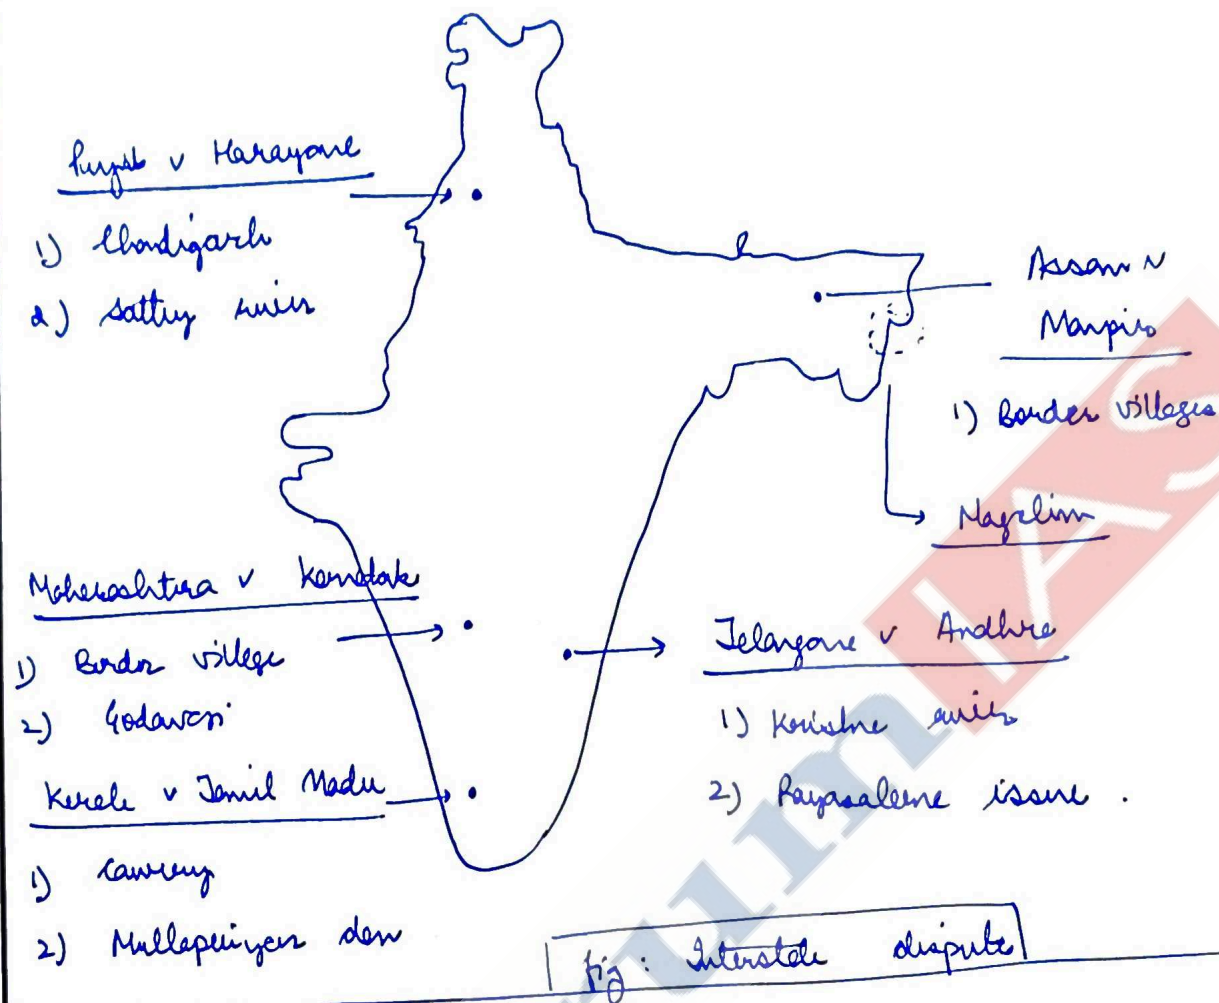 Punjab v Harayane
1) Chandigarh
2) Sattuj river
Assam v
Manipur
1) Border villages
Nagalim
Maharashtra v Karnatak
1) Border village
2) Godavari
Telangane v Andhra
1) Krishne river
2) Rayasaleene issue .
Kerale v Tamil Nadu
1) Cauvery
2) Mullaperiyar dam
fig : Interstate dispute
rumIAS